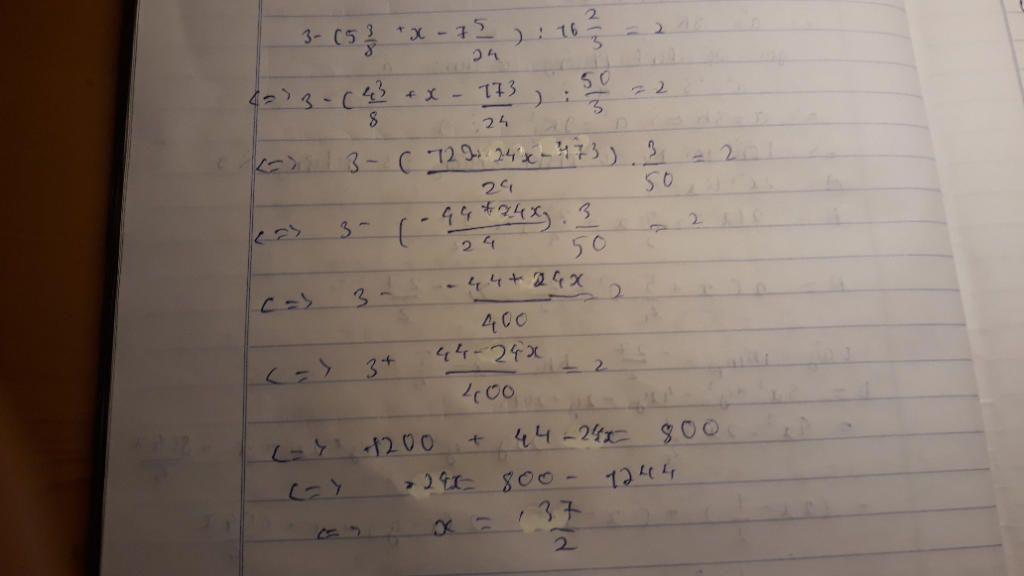 3-(5 3/8 + x - 7 5/24) : 16 2/3 = 2
<=> 3 - (43/8 + x - 173/24) : 50/3 = 2
<=> 3 - (129+24x-173/24) . 3/50 = 2
<=> 3 - (-44+24x/24) . 3/50 = 2
<=> 3 - -44+24x/400 = 2
<=> 3 + 44-24x/400 = 2
<=> 1200 + 44-24x = 800
<=> -24x = 800 - 1244
<=> x = 37/2